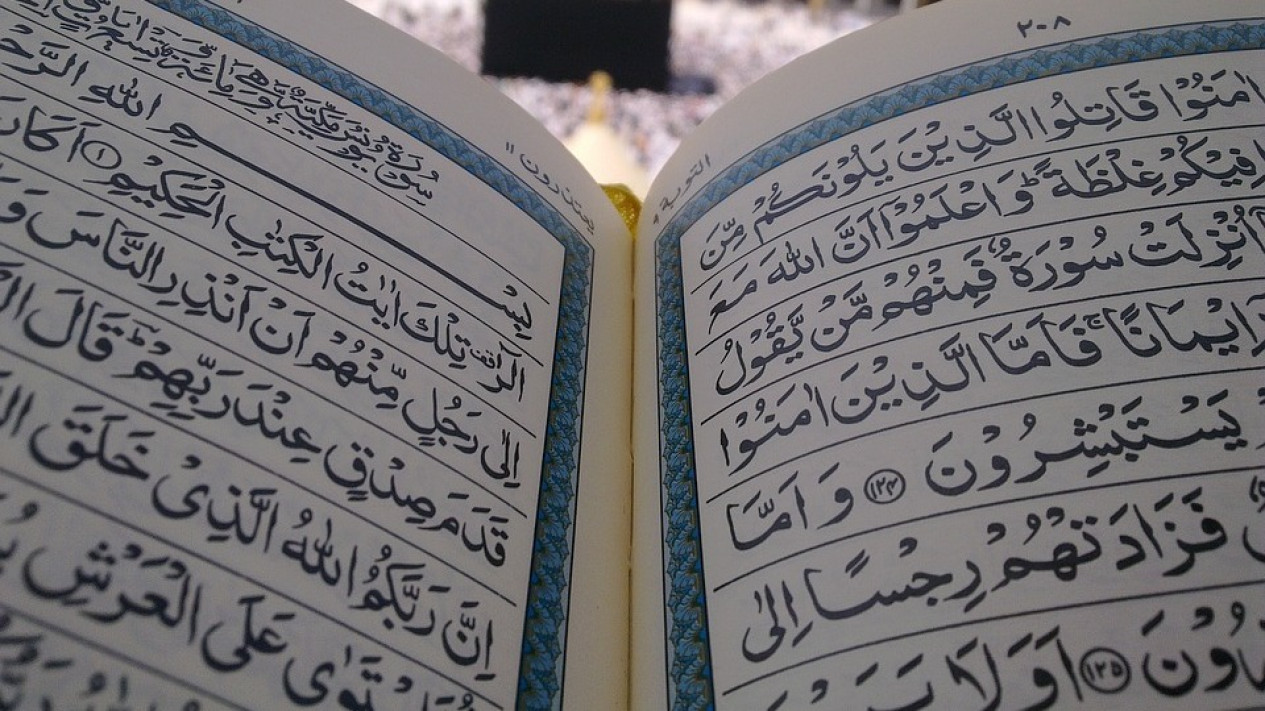 ٢٠٨
التوبة ٩
اٰمَنُوْا قَاتِلُوا الَّذِيْنَ يَلُوْنَكُمْ مِّنَ
فِيْكُمْ غِلْظَةً ؕ وَاعْلَمُوْۤا اَنَّ اللّٰهَ مَعَ
اُنْزِلَتْ سُوْرَةٌ فَمِنْهُمْ مَّنْ يَّقُوْلُ
اِيْمَانًا ۚ فَاَمَّا الَّذِيْنَ اٰمَنُوْا
يَسْتَبْشِرُوْنَ ﴿۱۲۴﴾ وَ اَمَّا
فَزَادَتْهُمْ رِجْسًا اِلٰى
﴿۱۲۵﴾ اَوَلَا
يعتذرون ١١
سُوْرَةُ يُوْنُسَ مَكِّيَّةٌ
بِسْـــــمِ اللّٰهِ الرَّحْ
الٓرٰ ۟ تِلْكَ اٰيٰتُ الْكِتٰبِ الْحَكِيْمِ ﴿۱﴾ اَكَانَ
اِلٰى رَجُلٍ مِّنْهُمْ اَنْ اَنْذِرِ النَّاسَ وَ
قَدَمَ صِدْقٍ عِنْدَ رَبِّهِمْ ؕ قَالَ
اِنَّ رَبَّكُمُ اللّٰهُ الَّذِىْ خَلَقَ
اسْتَوٰى عَلَى الْعَرْشِ